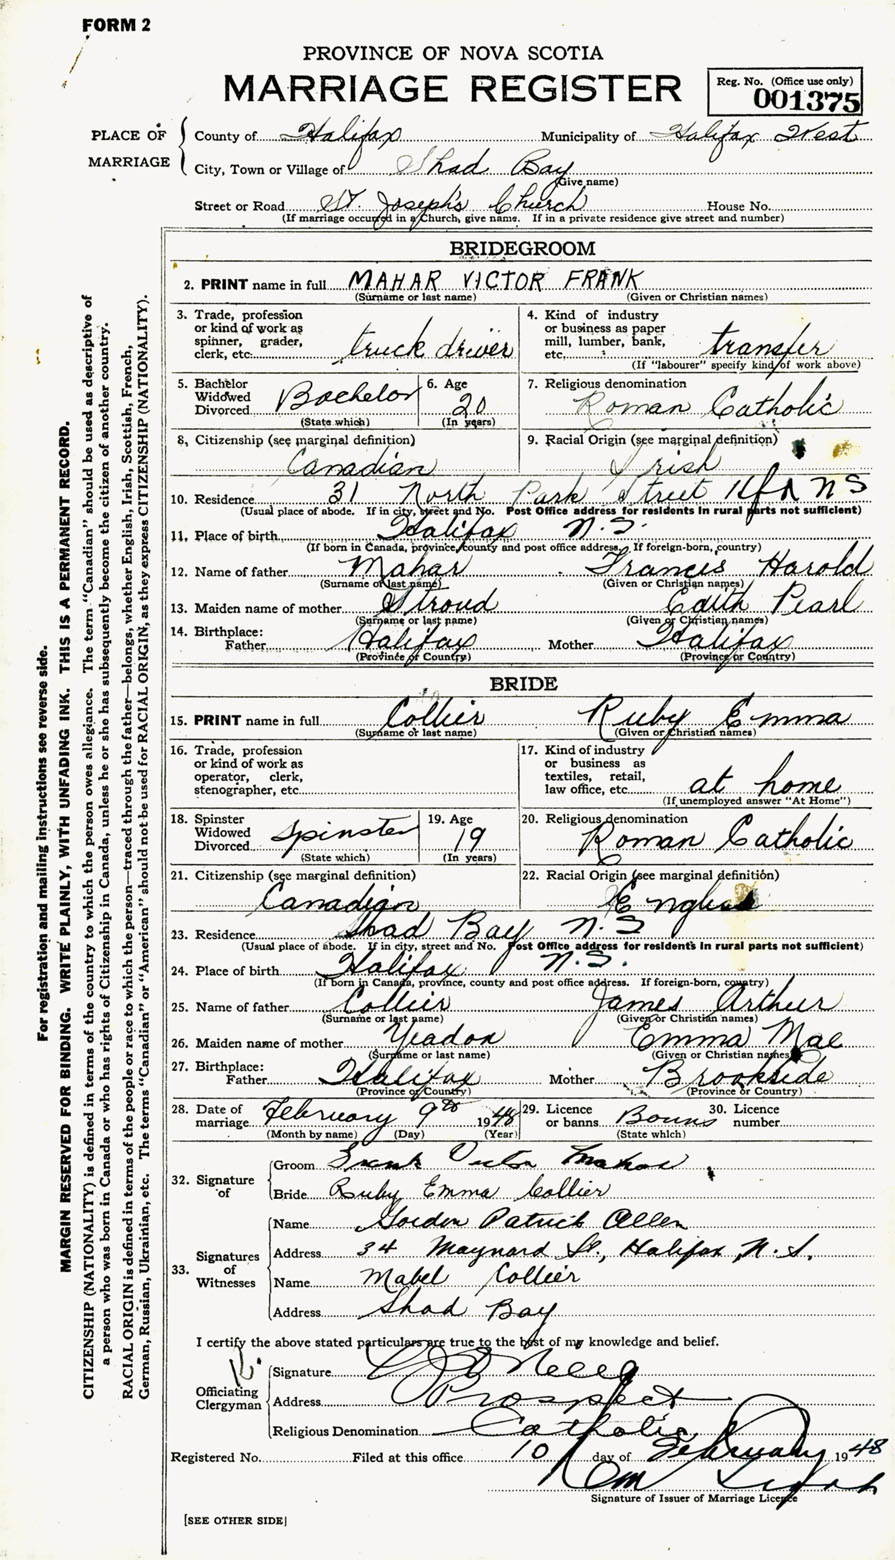 FORM 2
PROVINCE OF NOVA SCOTIA
MARRIAGE REGISTER
Reg. No. (Office use only)
001375
PLACE OF MARRIAGE
County of Halifax Municipality of Halifax West
City, Town or Village of Shad Bay
(Give name)
Street or Road St. Joseph's Church House No.
(If marriage occurred in a Church, give name. If in a private residence give street and number)
BRIDEGROOM
2. PRINT name in full MAHAR VICTOR FRANK
(Surname or last name) (Given or Christian names)
3. Trade, profession or kind of work as spinner, grader, clerk, etc. truck driver
4. Kind of industry or business as paper mill, lumber, bank, etc. transfer
(If "labourer" specify kind of work above)
5. Bachelor Widowed Divorced Bachelor
(State which)
6. Age 20
(In years)
7. Religious denomination
Roman Catholic
8. Citizenship (see marginal definition)
Canadian
9. Racial Origin (see marginal definition)
Irish
10. Residence 31 North Park Street Hfx NS
(Usual place of abode. If in city, street and No. Post Office address for residents in rural parts not sufficient)
11. Place of birth Halifax N.S.
(If born in Canada, province, county and post office address. If foreign-born, country)
12. Name of father Mahar Francis Harold
(Surname or last name) (Given or Christian names)
13. Maiden name of mother Stroud Edith Pearl
(Surname or last name) (Given or Christian names)
14. Birthplace:
Father Halifax Mother Halifax
(Province or Country) (Province or Country)
BRIDE
15. PRINT name in full Collier Ruby Emma
(Surname or last name) (Given or Christian names)
16. Trade, profession or kind of work as operator, clerk, stenographer, etc.
17. Kind of industry or business as textiles, retail, law office, etc. at home
(If unemployed answer "At Home")
18. Spinster Widowed Divorced Spinster
(State which)
19. Age 19
(In years)
20. Religious denomination
Roman Catholic
21. Citizenship (see marginal definition)
Canadian
22. Racial Origin (see marginal definition)
English
23. Residence Shad Bay N.S
(Usual place of abode. If in city, street and No. Post Office address for residents in rural parts not sufficient)
24. Place of birth Halifax N.S.
(If born in Canada, province, county and post office address. If foreign-born, country)
25. Name of father Collier James Arthur
(Surname or last name) (Given or Christian names)
26. Maiden name of mother Yeadon Emma Mae
(Surname or last name) (Given or Christian names)
27. Birthplace:
Father Halifax Mother Brookside
(Province or Country) (Province or Country)
28. Date of marriage February 9th 1948
(Month by name) (Day) (Year)
29. Licence or banns Banns
(State which)
30. Licence number
32. Signature of
Groom Frank Victor Mahar
Bride Ruby Emma Collier
33. Signatures of Witnesses
Name Gordon Patrick Allen
Address 34 Maynard St., Halifax, N.S.
Name Mabel Collier
Address Shad Bay
I certify the above stated particulars are true to the best of my knowledge and belief.
Officiating Clergyman
Signature
Address Prospect
Religious Denomination Catholic
Registered No. Filed at this office 10 day of February 1948
Signature of Issuer of Marriage Licence
[SEE OTHER SIDE]
For registration and mailing instructions see reverse side.
MARGIN RESERVED FOR BINDING. WRITE PLAINLY, WITH UNFADING INK. THIS IS A PERMANENT RECORD.
CITIZENSHIP (NATIONALITY) is defined in terms of the country to which the person owes allegiance. The term "Canadian" should be used as descriptive of
a person who was born in Canada or who has rights of Citizenship in Canada, unless he or she has subsequently become the citizen of another country.
RACIAL ORIGIN is defined in terms of the people or race to which the person—traced through the father—belongs, whether English, Irish, Scottish, French,
German, Russian, Ukrainian, etc. The terms "Canadian" or "American" should not be used for RACIAL ORIGIN, as they express CITIZENSHIP (NATIONALITY).